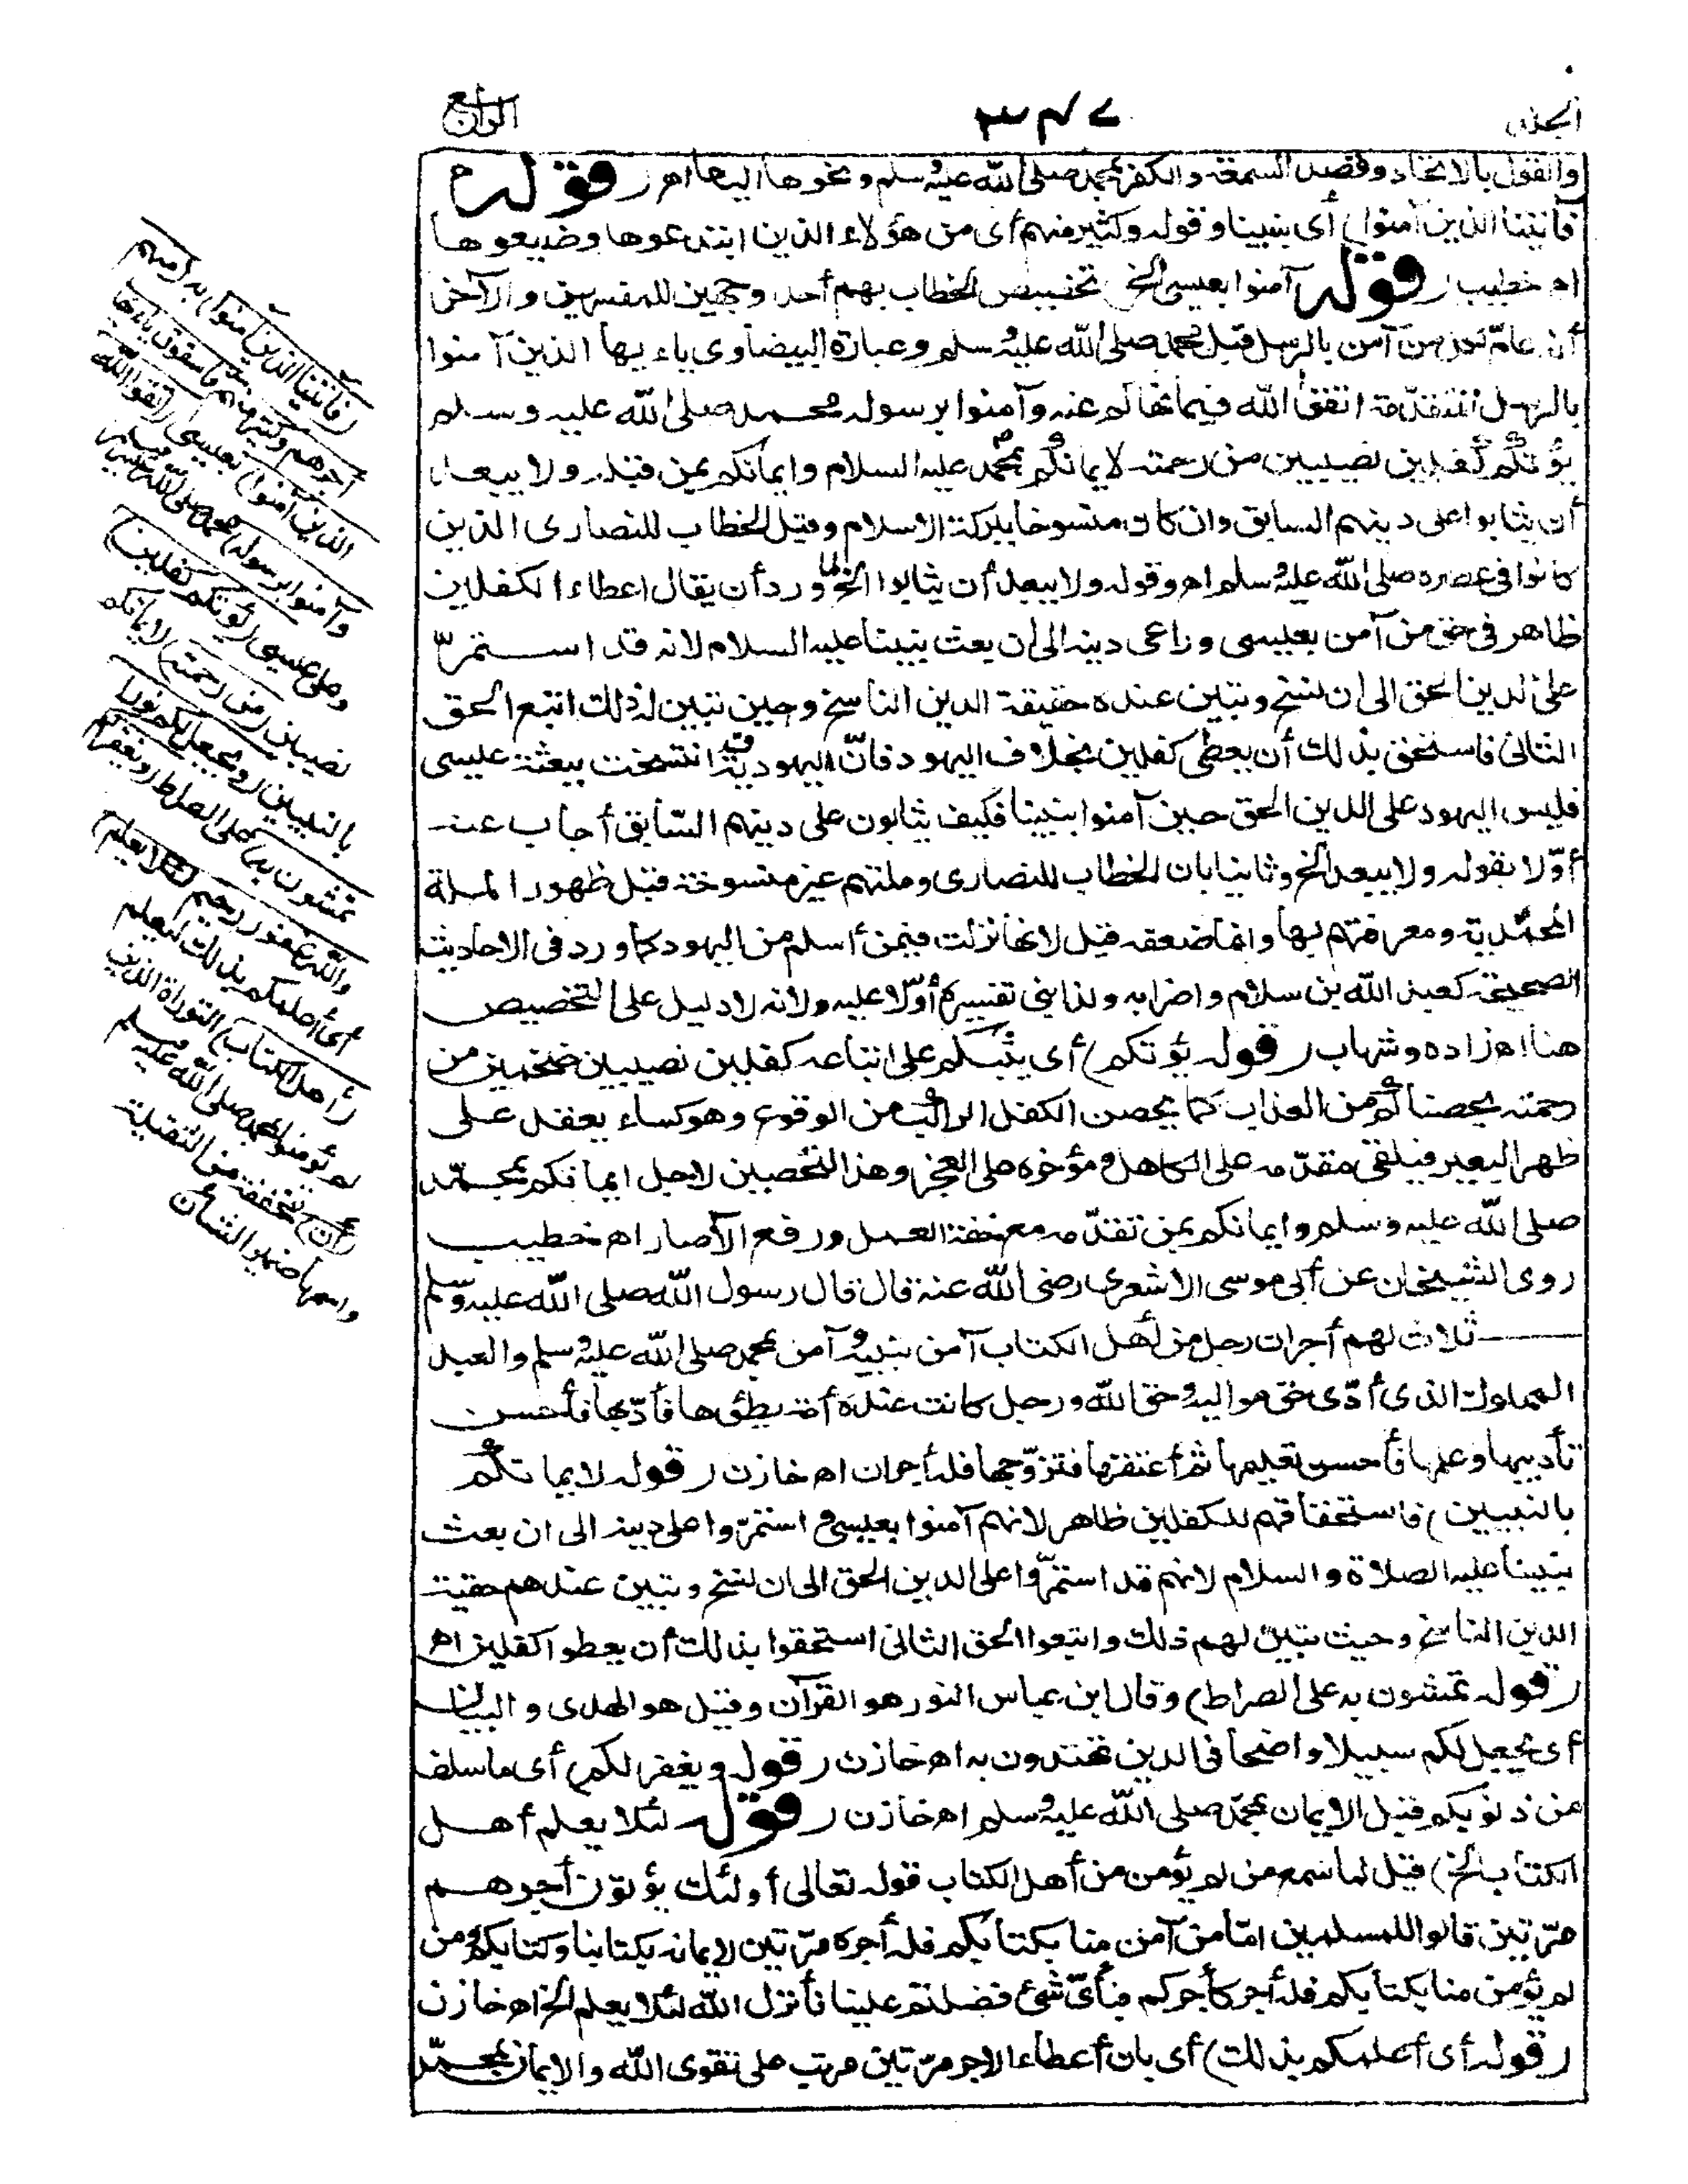 الجلد
٣٤٧
الرابع
والقول بالاتحاد وقصد السمعة والكفر بمحمد صلى الله عليه وسلم ونحوها اليها اهـ (قوله
فآتينا الذين آمنوا) أى بنبينا وقوله وكثير منهم أى من هؤلاء الذين ابتدعوها وضيعوها
اهـ خطيب (قوله آمنوا بعيسى الخ) تخصيص الخطاب بهم أحد وجهين للمفسرين والآخر
أنه عامّ لكل من آمن بالرسل قبل محمد صلى الله عليه وسلم وعبارة البيضاوى ياءيها الذين آمنوا
بالرسل المتقدّمة اتقوا الله فيما نهاكم عنه وآمنوا برسوله محمد صلى الله عليه وسلم
يؤتكم كفلين نصيبين من رحمته لايمانكم بمحمد عليه السلام وايمانكم بمن قبله ولا يبعد
أن يثابوا على دينهم السابق وان كان منسوخا ببركة الاسلام وقيل الخطاب للنصارى الذين
كانوا فى عصره صلى الله عليه وسلم اهـ وقوله ولا يبعد أن يثابوا الخ لما ورد أن يقال اعطاء الكفلين
ظاهر فى حق من آمن بعيسى وراعى دينه الى أن بعث نبينا عليه السلام لانه قد استمرّ
على الدين الحق الى ان نسخ وتبين عنده حقيقة الدين الناسخ وحين تبين له ذلك اتبع الحق
الثانى فاستحق بذلك أن يعطى كفلين بخلاف اليهود فانّ اليهودية قد انتسخت ببعثة عيسى
فليس اليهود على الدين الحق حين آمنوا بنبينا فكيف يثابون على دينهم السابق أجاب عنه
أوّلا بقوله ولا يبعد الخ وثانيا بان الخطاب للنصارى وملتهم غير منسوخة قبل ظهور الملة
المحمدية ومعرفتهم بها وانما ضعفه قيل لانها نزلت فيمن أسلم من اليهود كما ورد فى الاحاديث
الصحيحة كعبد الله بن سلام واضرابه ولذا بنى تفسيره أوّلا عليه ولانه لا دليل على التخصيص
هنا اهـ زاده وشهاب (قوله يؤتكم) أى يثبكم على اتباعه كفلين نصيبين ضخمين من
رحمته يحصنانكم من العذاب كما يحصن الكفل الراكب من الوقوع وهو كساء يعقد على
ظهر البعير فيلقى مقدّمه على الكاهل ومؤخره على العجز وهذا التحصين لاجل ايمانكم بمحمد
صلى الله عليه وسلم وايمانكم بمن تقدّمه مع خفة العمل ورفع الآصار اهـ خطيب
روى الشيخان عن أبى موسى الاشعرى رضى الله عنه قال قال رسول الله صلى الله عليه وسلم
ثلاث لهم أجران رجل من أهل الكتاب آمن بنبيه وآمن بمحمد صلى الله عليه وسلم والعبد
المملوك الذى أدّى حق مواليه وحق الله ورجل كانت عنده أمة يطؤها فأدّبها فأحسن
تأديبها وعلمها فأحسن تعليمها ثم أعتقها فتزوّجها فله أجران اهـ خازن (قوله لايمانكم
بالنبيين) فاستحقاقهم للكفلين ظاهر لانهم آمنوا بعيسى واستمرّوا على دينه الى ان بعث
نبينا عليه الصلاة والسلام لانهم قد استمرّوا على الدين الحق الى ان نسخ وتبين عندهم حقية
الدين الناسخ وحيث تبين لهم ذلك واتبعوا الحق الثانى استحقوا بذلك أن يعطوا كفلين اهـ
(قوله تمشون به على الصراط) وقال ابن عباس النور هو القرآن وقيل هو الهدى والبيان
أى يجعل لكم سبيلا واضحا فى الدين تهتدون به اهـ خازن (قوله ويغفر لكم) أى ما سلف
من ذنوبكم قبل الايمان بمحمد صلى الله عليه وسلم اهـ خازن (قوله لئلا يعلم أهل
الكتاب الخ) قيل لما سمع من لم يؤمن من أهل الكتاب قوله تعالى أولئك يؤتون أجرهم
مرّتين قالوا للمسلمين امّا من آمن منا بكتابكم فله أجره مرّتين لايمانه بكتابنا وكتابكم ومن
لم يؤمن منا بكتابكم فله أجر كأجركم فبأىّ شئ فضلتم علينا فأنزل الله لئلا يعلم الخ اهـ خازن
(قوله أى أعلمكم بذلك) أى بان أعطاء الاجر مرّتين مرتب على تقوى الله والايمان بمحمد
(فآتينا الذين آمنوا) به (منهم
أجرهم وكثير منهم فاسقون ياءيها
الذين آمنوا) بعيسى (اتقوا الله
وآمنوا برسوله) محمد صلى الله عليه وسلم
وعلى عيسى (يؤتكم كفلين)
نصيبين (من رحمته) لايمانكم
بالنبيين (ويجعل لكم نورا
تمشون به) على الصراط (ويغفر لكم
والله غفور رحيم لئلا يعلم)
أى أعلمكم بذلك ليعلم
(أهل الكتاب) التوراة الذين
لم يؤمنوا بمحمد صلى الله عليه وسلم
(أن) مخففة من الثقيلة
واسمها ضمير الشأن